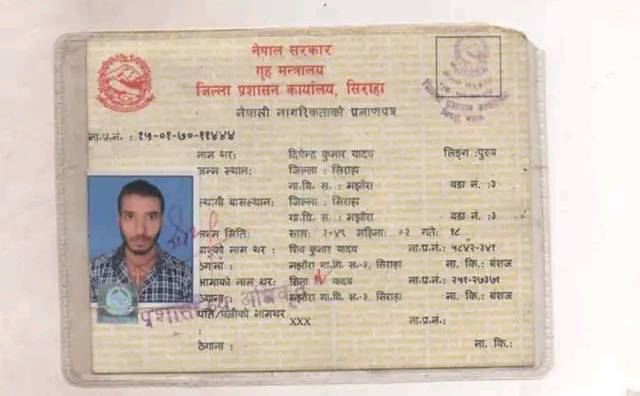 नेपाल सरकार
गृह मन्त्रालय
जिल्ला प्रशासन कार्यालय, सिराहा
नेपाली नागरिकताको प्रमाणपत्र
ना.प्र.नं. : १५-०१-७०-११४४४
नाम थर: दिपेन्द्र कुमार यादव लिङ्ग :पुरुष
जन्म स्थान: जिल्ला : सिराहा
गा.वि.स. : मझौरा वडा नं. :३
स्थायी बासस्थान: जिल्ला : सिराहा
गा.वि.स. : मझौरा वडा नं. :३
जन्म मिति: साल: २०४९ महिना: ०२ गते: १८
बाबुको नाम थर : शिव कुमार यादव ना.प्र.नं.: ५८४२-३४१
ठेगाना: मझौरा गा.वि.स.-३, सिराहा ना. कि.: वंशज
आमाको नाम थर: यादव ना.प्र.नं.: २५१-२७३७१
ठेगाना: मझौरा गा.वि.स.-३, सिराहा ना. कि.: वंशज
पति/पत्नीको नामथर : XXX ना.प्र.नं.:
ठेगाना : ना. कि.: